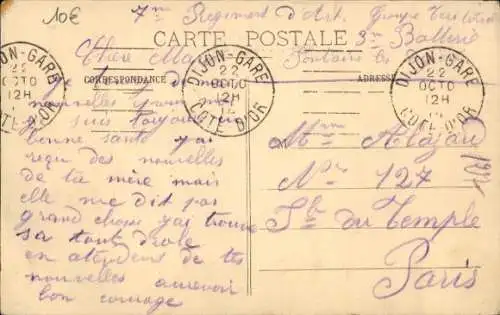 10€
7me Regiment d'Art. Groupe
3me Batterie
CARTE POSTALE
Chere
Fontaine les
CORRESPONDANCE
ADRESSE
DIJON-GARE
22
OCTO
12H
COTE D'OR
DIJON-GARE
22
OCTO
12H
COTE D'OR
DIJON-GARE
22
OCTO
12H
COTE D'OR
je de mes
nouvelles pour moi
je suis toujours en
bonne santé j'ai
reçu des nouvelles
de ta mère mais
elle me dit pas
grand chose j'ai trouvé
sa tout drole
en atendens de tes
nouvelles aurevoir
bon courage
Mme Alazard
No 127
Fb du Temple
Paris